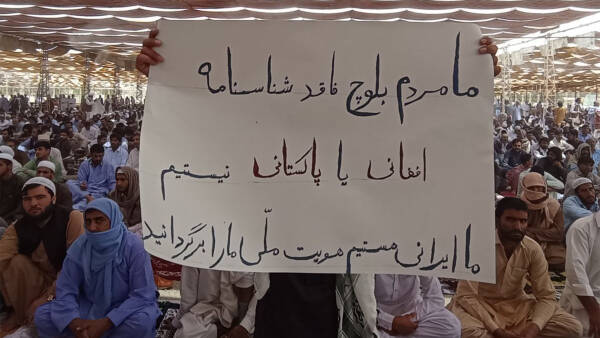 ما مردم بلوچ فاقد شناسنامه
افغانی یا پاکستانی نیستیم
ما ایرانی هستیم هویت ملّی ما را برگردانید